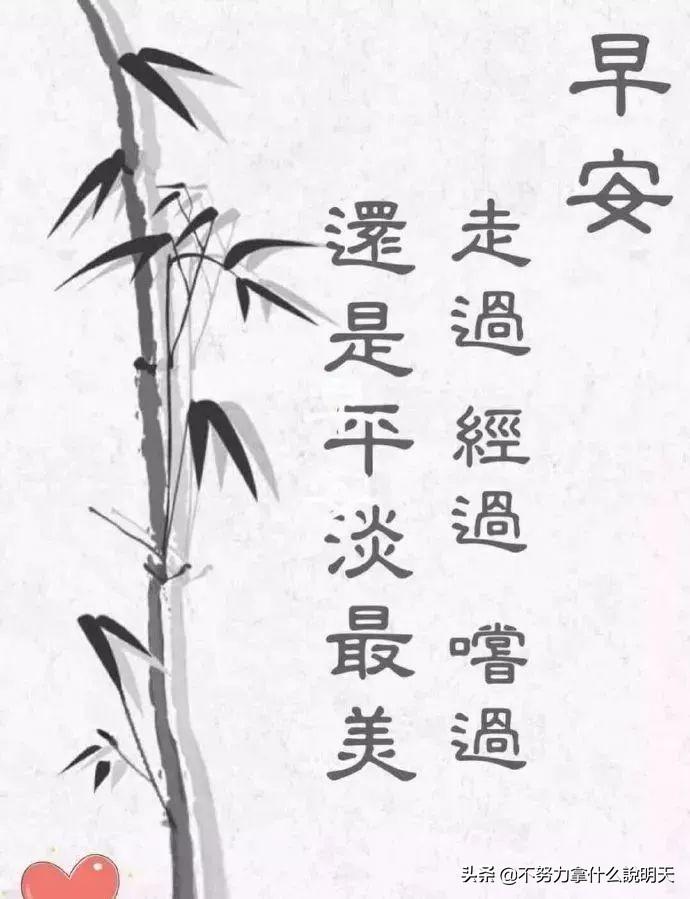 早安
走過 經過 嚐過
還是平淡最美
头条 @不努力拿什么說明天